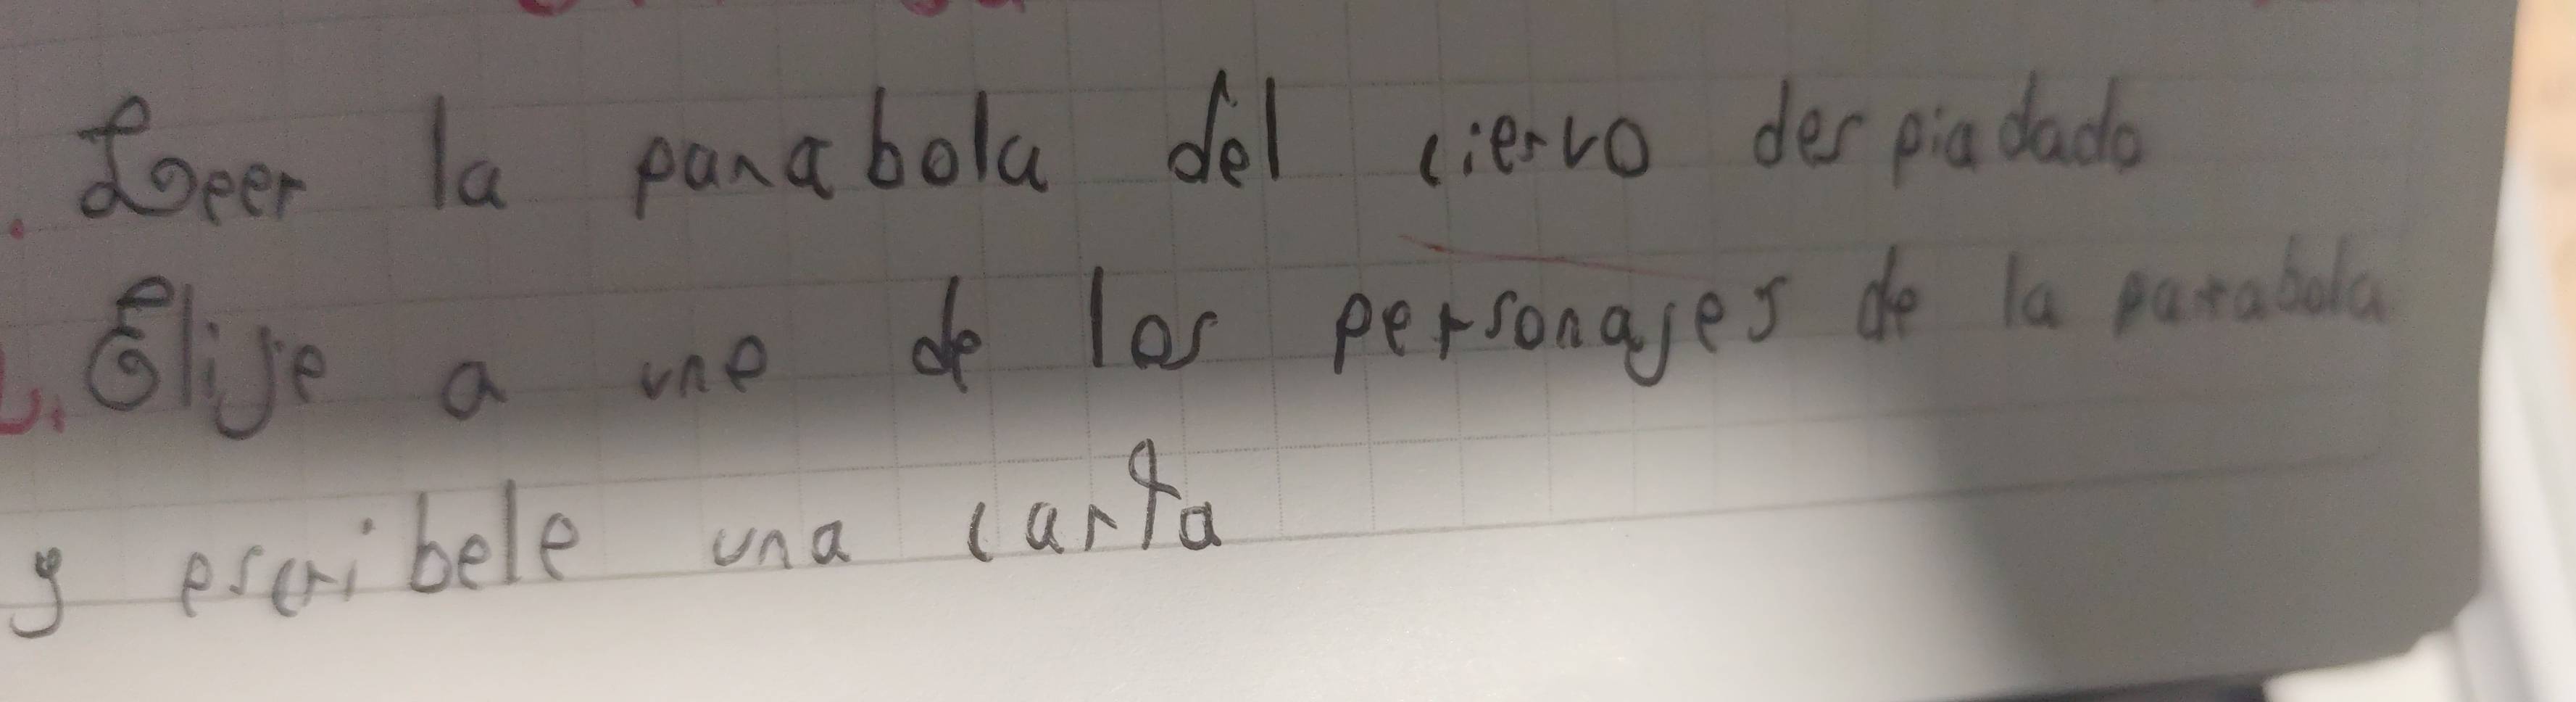 . Leer la parabola del ciervo despiadado
. Elije a uno de los personajes de la parabola
y escribele una carta